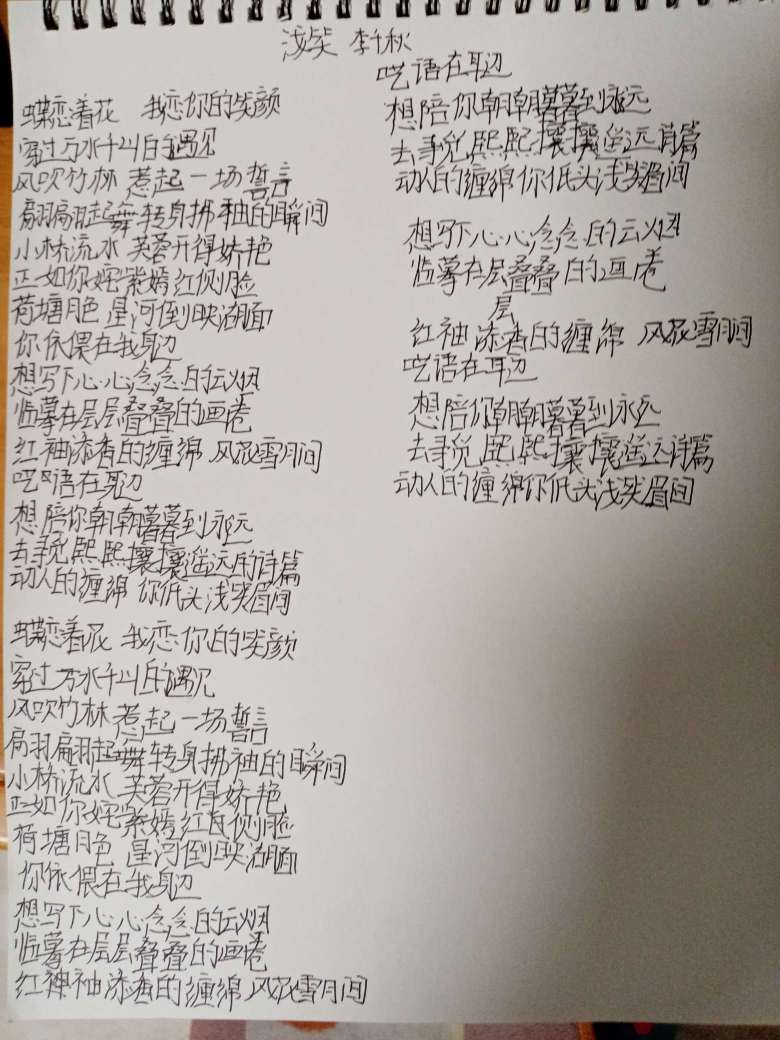 浅笑 李千秋
蝶恋着花 我恋你的笑颜
穿过万水千山的遇见
风吹竹林 惹起一场誓言
翩翩起舞转身拂袖的瞬间
小桥流水 芙蓉开得娇艳
正如你姹紫嫣红侧脸
荷塘月色 星河倒映湖面
你依偎在我身边
想写下心心念念的云烟
临摹在层层叠叠的画卷
红袖添香的缠绵 风花雪月间
呓语在耳边
想陪你朝朝暮暮到永远
去寻觅熙熙攘攘遥远的诗篇
动人的缠绵 你低头浅笑眉间
蝶恋着花 我恋你的笑颜
穿过万水千山的遇见
风吹竹林 惹起一场誓言
翩翩起舞转身拂袖的瞬间
小桥流水 芙蓉开得娇艳
正如你姹紫嫣红侧脸
荷塘月色 星河倒映湖面
你依偎在我身边
想写下心心念念的云烟
临摹在层层叠叠的画卷
红袖添香的缠绵 风花雪月间
呓语在耳边
想陪你朝朝暮暮到永远
去寻觅熙熙攘攘遥远诗篇
动人的缠绵你低头浅笑眉间
想写下心心念念的云烟
临摹在层叠叠的画卷
层
红袖添香的缠绵 风花雪月间
呓语在耳边
想陪你朝朝暮暮到永远
去寻觅熙熙攘攘遥远诗篇
动人的缠绵你低头浅笑眉间